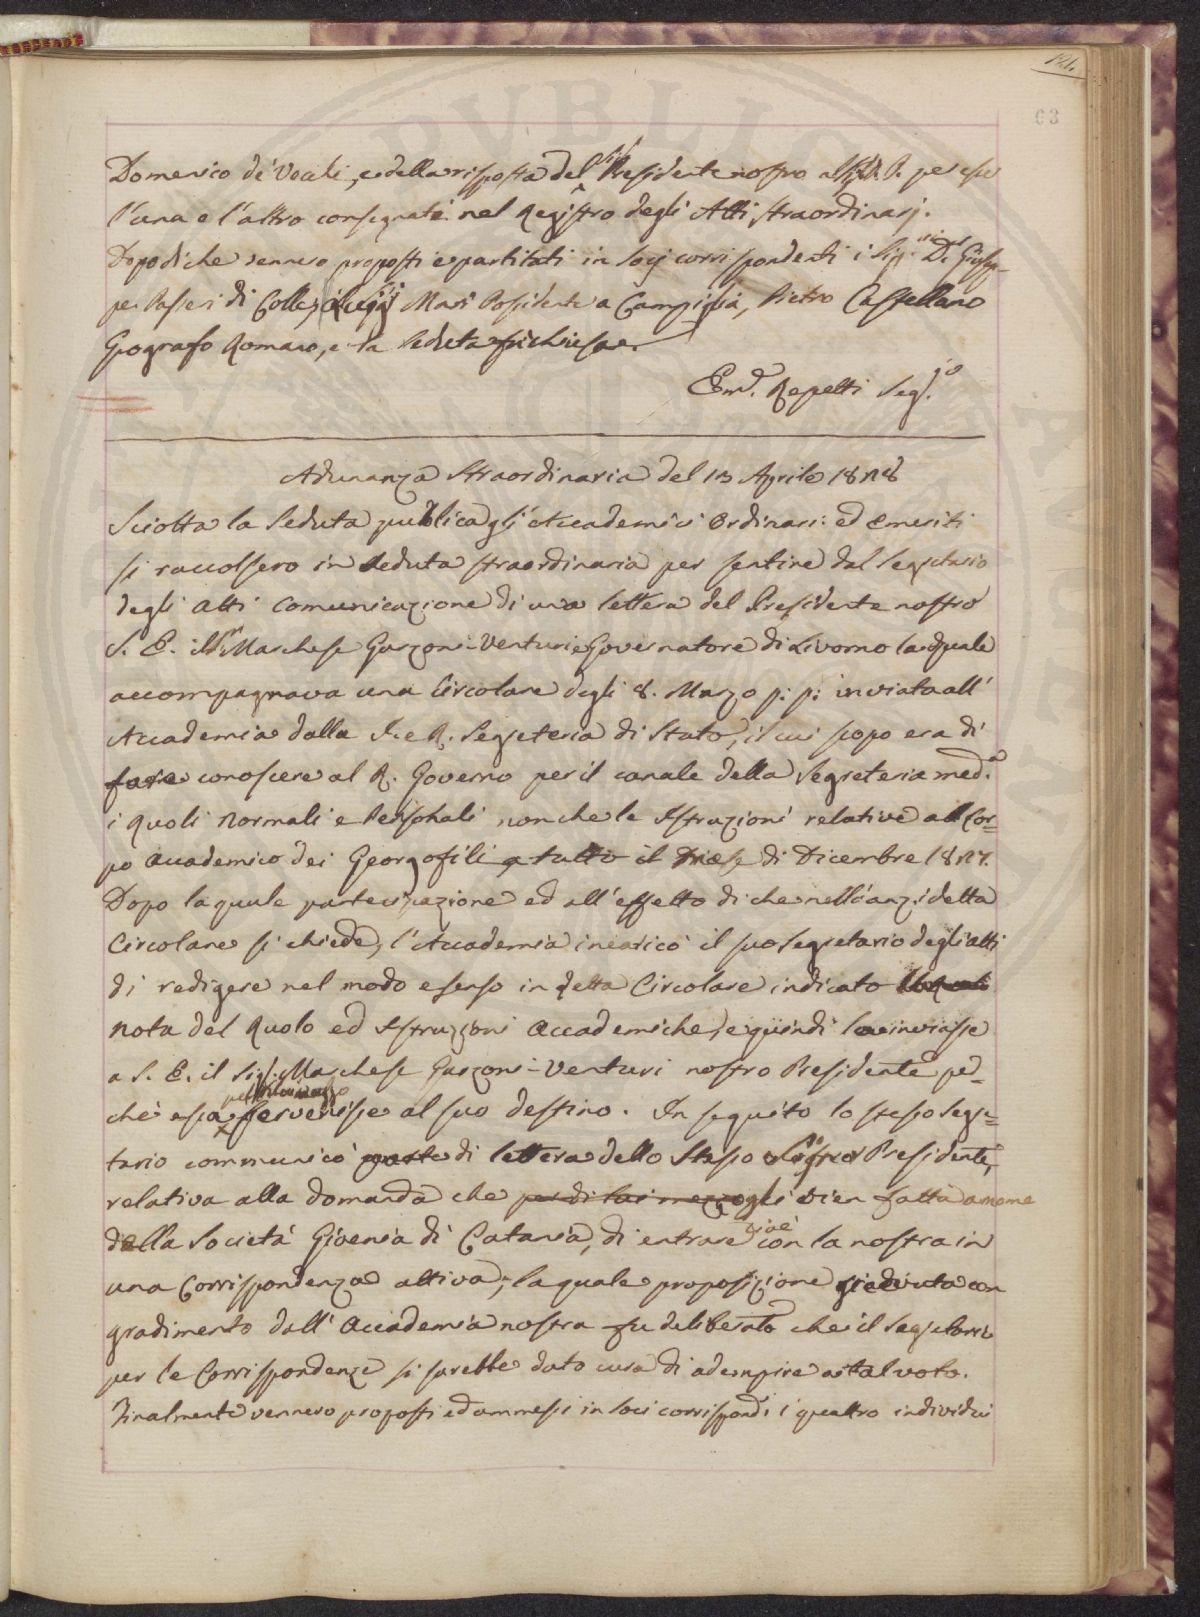 124
63
Domenico de' Vecchi, e della risposta del Sig. Presidente nostro per esser
l'una e l'altro consegnate nel Registro degli Atti straordinarj.
Dopodiche vennero proposti e partitati in Socj corrispondenti i Sigg.ri D.r Giusep-
pe di Colle, Luigi Masi Possidente a Campiglia, Pietro Castellano
Geografo Romano, e la seduta si chiuse.
Em.o Repetti Seg.io
Adunanza Straordinaria del 13 Aprile 1828
Sciolta la Seduta pubblica gl'Accademici Ordinari ed Emeriti
si raccolsero in Seduta straordinaria per sentire dal Segretario
degli Atti comunicazione di una lettera del Presidente nostro
S. E. il Sig.r Marchese Garzoni-Venturi Governatore di Livorno la quale
accompagnava una Circolare degli 8. Marzo p: p: inviata all'
Accademia dalla I. e R. Segreteria di Stato, il cui scopo era di
fare conoscere al R. Governo per il canale della Segreteria med.a
i Ruoli Normali e Personali nonche le Istruzioni relative al Cor=
po Accademico dei Georgofili a tutto il Mese di Dicembre 1827.
Dopo la quale partecipazione ed all'effetto di che nell'anzidetta
Circolare si chiede, l'Accademia incaricò il suo Segretario degli atti
di redigere nel modo e senso in detta Circolare indicato
Nota del Ruolo ed Istruzioni Accademiche, e quindi la inviasse
a S. E. il Sig. Marchese Garzoni-Venturi nostro Presidente per=
chè essa pervenisse al suo destino. In seguito lo stesso Segre=
tario communicò parte di lettera dello Stesso Signor Presidente,
relativa alla domanda che per di lui mezzo gli vien fatta a nome
della Società Gioenia di Catania, di entrare cioè con la nostra in
una Corrispondenza attiva; la quale proposizione ricevuta con
gradimento dall'Accademia nostra fu deliberato che il Segretario
per le Corrispondenze si sarebbe dato cura di adempire a tal voto.
Finalmente vennero proposti ed ammessi in Soci corrispond.i i quattro individui